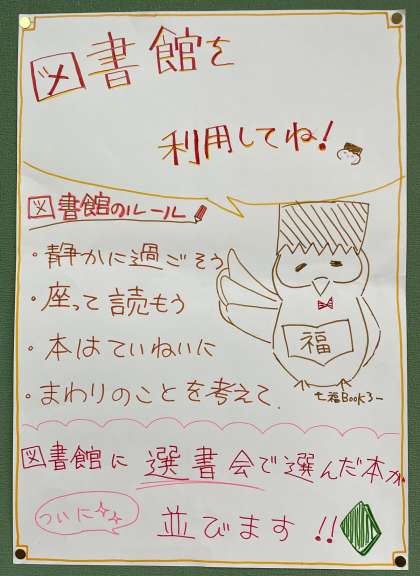 図書館を
利用してね！
図書館のルール
・静かに過ごそう
・座って読もう
・本はていねいに
・まわりのことを考えて
福
七福Bookろー
図書館に選書会で選んだ本が
ついに
並びます!!